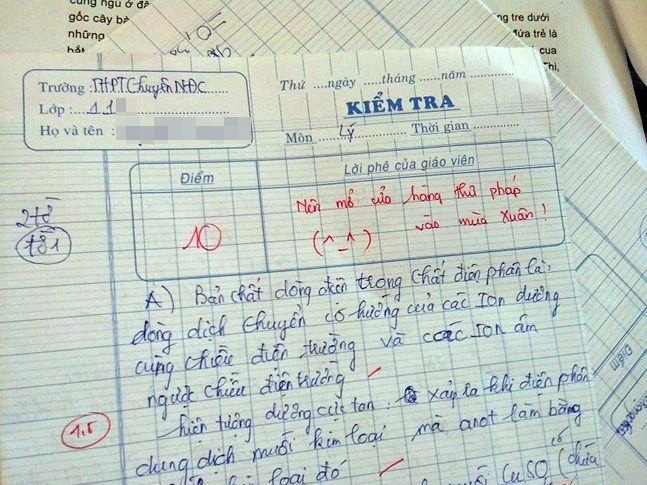 cùng ngủ ở đâ
gốc cây bà
những
hắt
ng tre dưới
đứa trẻ là
cua
Thi,
Trường : THPT Chuyên NĐC
Lớp : 11
Họ và tên :
Thứ ....ngày .....tháng ......năm
KIỂM TRA
Môn Lý Thời gian
Điểm
Lời phê của giáo viên
10
Nên mở cửa hàng thư pháp
(^_^) vào mùa xuân !
2 tờ
tờ 1
A) Bản chất dòng điện trong chất điện phân là:
dòng dịch chuyển có hướng của các Ion dương
cùng chiều điện trường và các Ion âm
ngược chiều điện trường
hiện tượng dương cực tan : xảy ra khi điện phân
1,5
dung dịch muối kim loại mà anot làm bằng
loại đó
muối CuSO4 có
Điểm